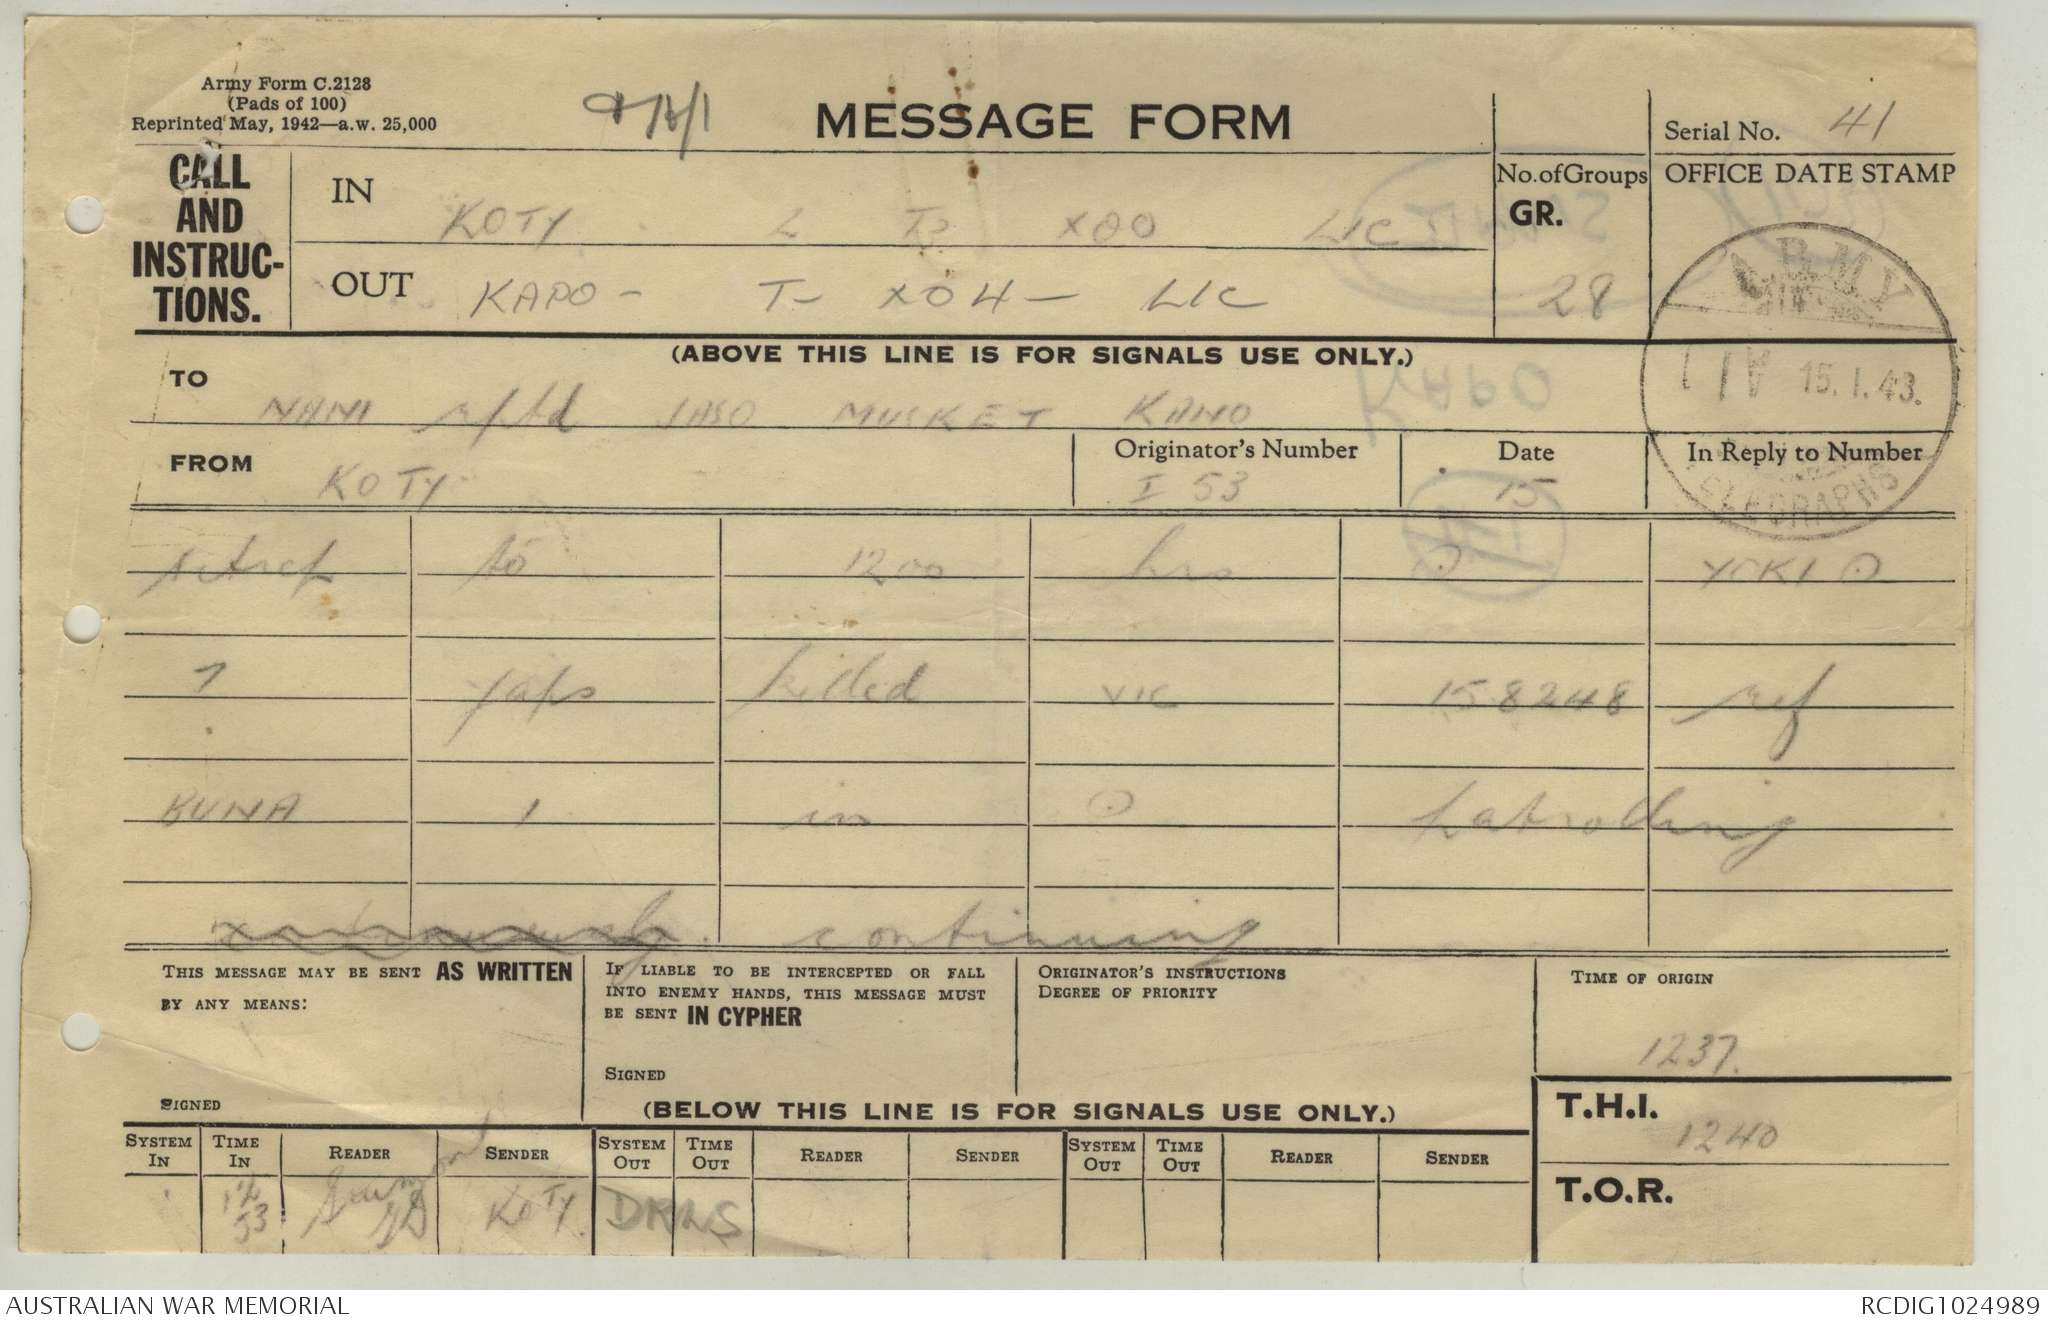 Army Form C.2128
(Pads of 100)
Reprinted May, 1942—a.w. 25,000
MESSAGE FORM
Serial No. 41
CALL AND INSTRUC-TIONS.
IN KOTY L X00 LIC
OUT KAPO - T - X04 - LIC
No. of Groups GR. 28
OFFICE DATE STAMP
ARMY
15.1.43.
TELEGRAPHS
(ABOVE THIS LINE IS FOR SIGNALS USE ONLY.)
TO NANI rptd JASO MUSKET KANO
KAPO
FROM KOTY
Originator's Number I 53
Date 15
In Reply to Number
sitrep to 1200 hrs ⊙ YOKI ⊙
7 Japs killed vic 158248 ref
BUNA 1 in ⊙ patrolling
continuing
THIS MESSAGE MAY BE SENT AS WRITTEN BY ANY MEANS:
SIGNED
IF LIABLE TO BE INTERCEPTED OR FALL INTO ENEMY HANDS, THIS MESSAGE MUST BE SENT IN CYPHER
SIGNED
ORIGINATOR'S INSTRUCTIONS
DEGREE OF PRIORITY
TIME OF ORIGIN
1237.
(BELOW THIS LINE IS FOR SIGNALS USE ONLY.)
T.H.I. 1240
T.O.R.
SYSTEM IN TIME IN READER SENDER SYSTEM OUT TIME OUT READER SENDER SYSTEM OUT TIME OUT READER SENDER
12 53 KOTY DRLS
AUSTRALIAN WAR MEMORIAL
RCDIG1024989